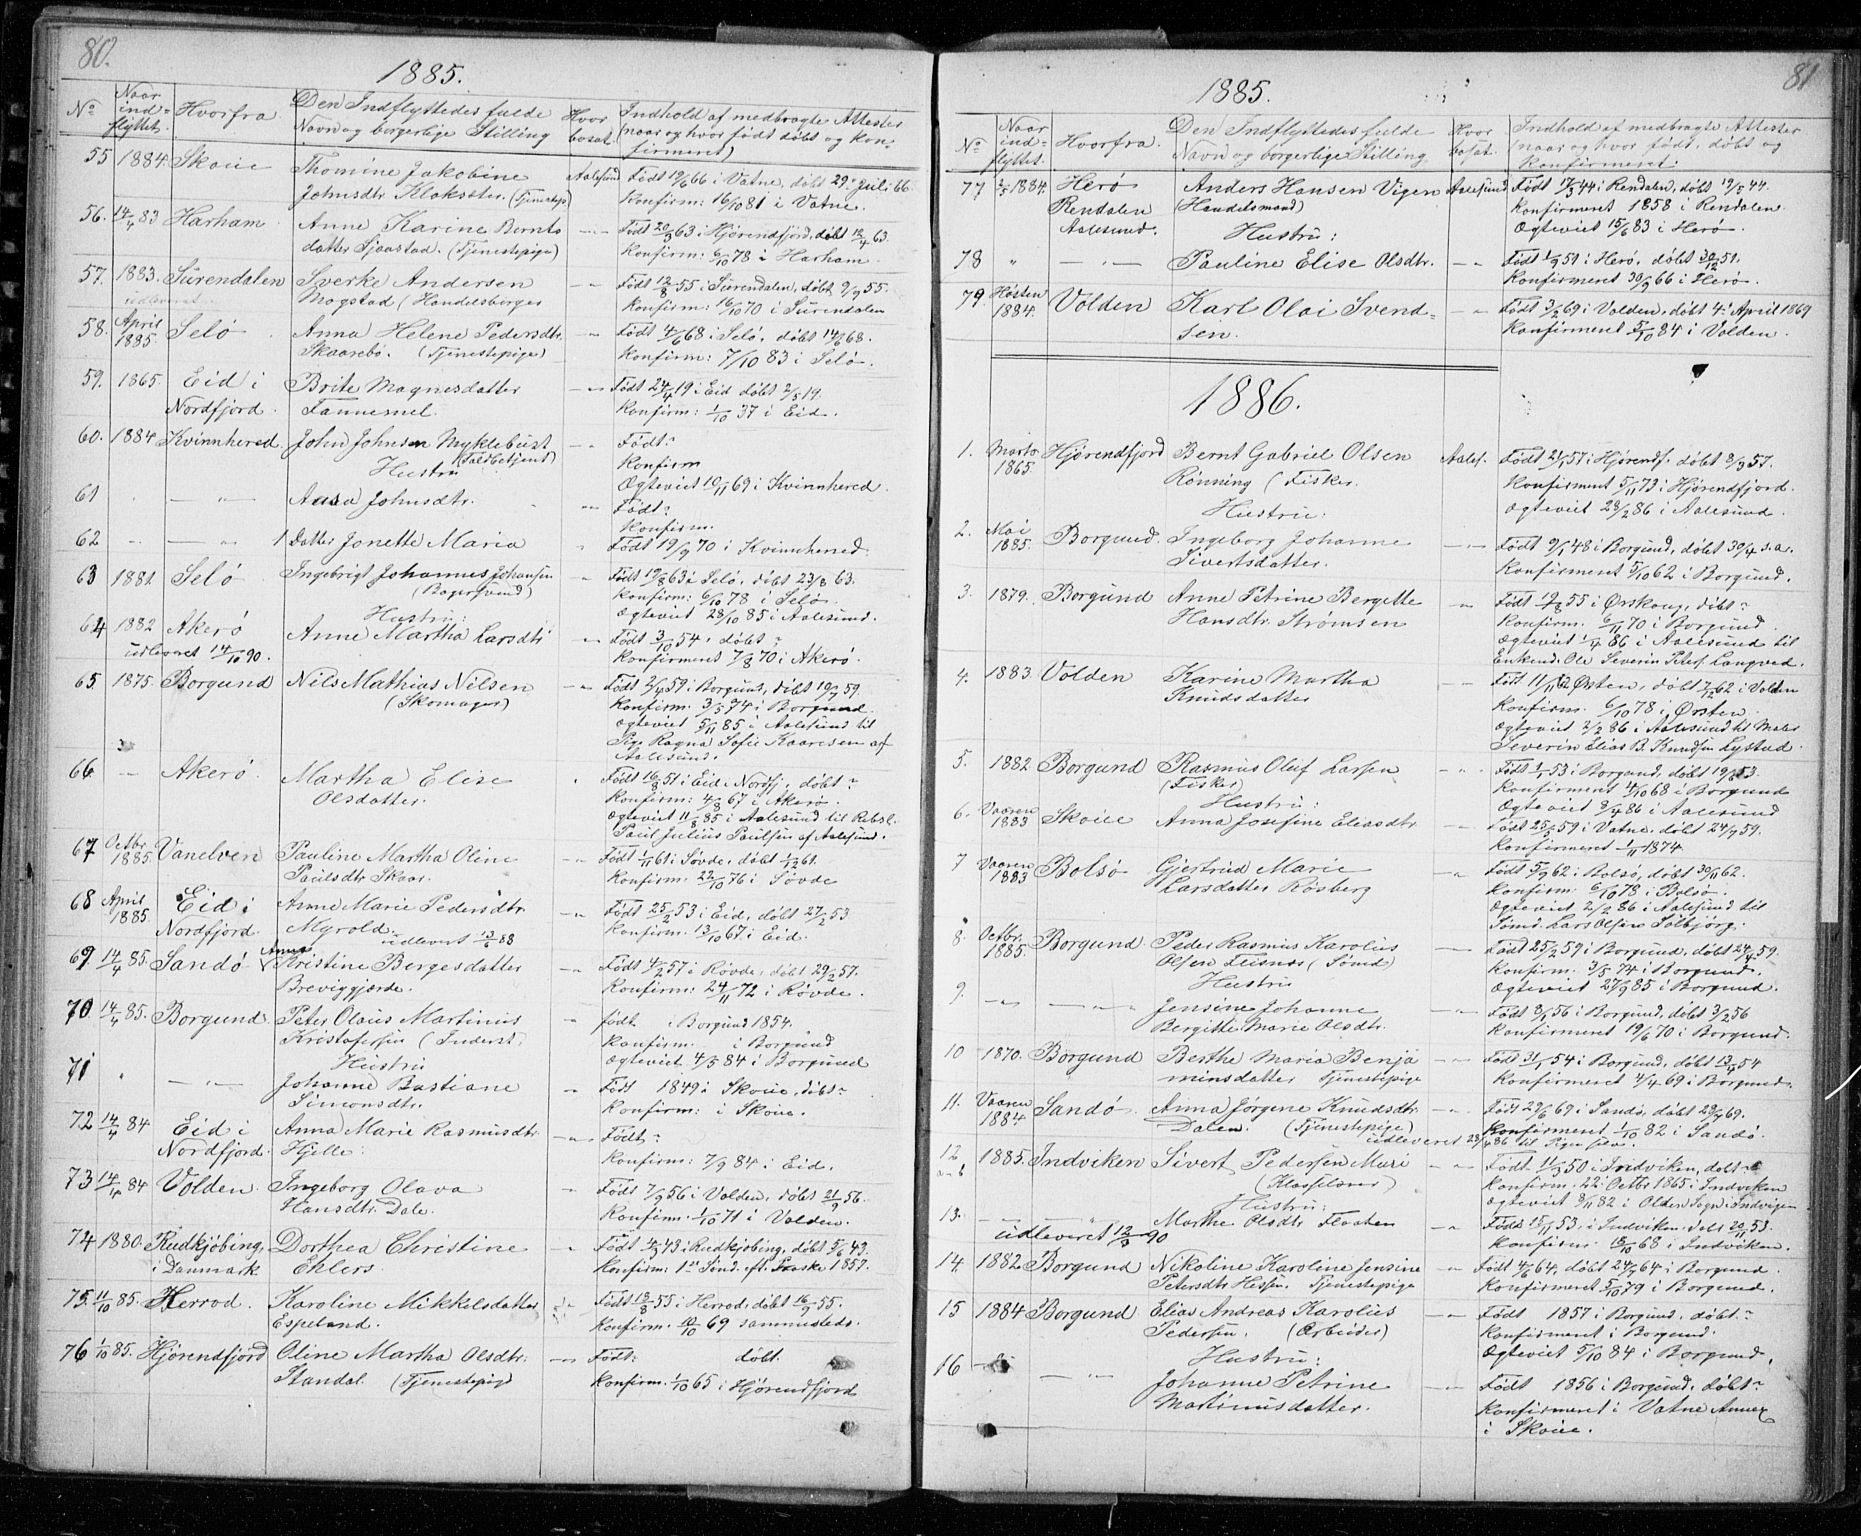 80.
1885.
No Naar ind= flyttet. Hvorfra Den Indflyttedes fulde Navn og borgerlige Stilling Hvor bosat. Indhold af medbragte Attester (naar og hvor født døbt og kon= firmeret)
55 1884. Skoue Thomine Jakobine Aalesund Født 19/6 66 i Vatne, døbt 29. juli 66.
Johnsdtr Kloksæter. (Tjenestep) Konfirm: 16/10 81 i Vatne.
56. 14/4 83 Harham Anne Karine Bernts Født 20/3 63 i Hjørendfjord, døbt 12/4 63.
datter Sjaastad. (Tjenestepige) Konfirm: 6/10 78 i Harham.
57. 1883. Surendalen Sverke Andersen Født 12/8 55 i Surendalen, døbt 9/9 55.
udleveret Mogstad (Handelsborger Konfirm: 16/10 70 i Surendalen
58. April 1885. Selø Anna Helene Pedersdtr. Født 4/6 68 i Selø, døbt 14/6 68.
Skaarebø. (Tjenestepige) Konfirm: 7/10 83 i Selø.
59. 1865. Eid i Brite Magnesdatter Født 24/4 19 i Eid døbt 2/5 19.
Nordfjord. Tannemel. Konfirm: 1/10 37 i Eid.
60. 1884 Kvinnhered. John Johnsen Myklebust Født?
(Toldbetjent) Konfirm
Hustru Ægteviet 10/11 69 i Kvinnhered.
61 Aasa Johnsdtr. Født?
Konfirm.
62 1 Datter Jonette Maria Født 19/9 70 i Kvinnhered.
63 1881. Selø Ingebrigt Johannes Johansen Født 19/8 63 i Selø, døbt 23/8 63.
(Bagersvend) Konfirm: 6/10 78 i Selø.
Hustru: Ægteviet 28/10 85 i Aalesund.
64 1882 Akerø Anne Martha Larsdtr Født 3/10 54, døbt?
udleveret 14/10 90. Konfirmeret 7/8 70 i Akerø.
65. 1875. Borgund Nils Mathias Nilsen Født 2/4 59 i Borgund, døbt 19/4 59.
(Skomager) Konfirm. 3/5 74 i Borgund.
Ægteviet 5/11 85 i Aalesund til
Pige Ragna Sofie Kaaresen af
Aalesund.
66 Akerø. Martha Elise Født 16/8 51 i Eid i Nordfj, døbt?
Olsdatter. Konfirm: 4/8 67 i Akerø.
Ægteviet 11/8 85 i Aalesund til Rebsl.
Paul Julius Paulsen af Aalesund.
67 Octbr. 1885 Vanelven Pauline Martha Oline Født 1/11 61 i Søvde, døbt 1/12 61.
Paulsdtr Skaar. Konfirm: 22/10 76 i Søvde
68 April 1885. Eid i Anne Marie Pedersdtr. Født 25/2 53 i Eid, døbt 27/2 53
Nordfjord. Myrold. udlevert 13/6 88 Konfirm: 13/10 67 i Eid.
69 14/4 85. Sandø Anna Kristine Bergesdatter Født 4/2 57 i Røvde, døbt 29/2 57.
Breviggjærde. Konfirm: 24/11 72 i Røvde.
70. 14/4 85. Borgund. Peter Olaus Martinus født i Borgund 1854.
Kristofersen (Inderst) Konfirm. i Borgund
Hustru Ægteviet 4/5 84 i Borgund
71 Johanne Bastiane Født 1849 i Skoue, døbt?
Simonsdtr. Konfirm: i Skoue.
72 14/4 84 Eid i Anna Marie Rasmusdtr Født?
Nordfjord. Hjelle. Konfirm: 7/9 84 i Eid.
73 14/4 84 Volden. Ingeborg Olava Født 7/9 56 i Volden, døbt 21/9 56.
Hansdtr. Dale. Konfirm. 1/10 71 i Volden.
74 1880. Rudkjøbing, Dorthea Christine Født 4/3 43 i Rudkjøbing, døbt 5/6 43.
i Danmark Ehlers. Konfirm: 1ste Sønd. eft. Paaske 1857.
75. 11/10 85. Herrod. Karoline Mikkelsdatter Født 13/8 55 i Herrod, døbt 16/9 55.
Espeland. Konfirm. 10/10 69 sammesteds.
76 1/10 85. Hjørendfjord Oline Martha Olsdtr. Født: døbt.
Standal. (Tjenestepig) Konfirm. 1/10 65 i Hjørendfjord
81
1885.
No Naar ind= flyttet. Hvorfra. Den Indflyttedes fulde Navn og borgerlige Stilling Hvor bosat. Indhold af medbragte Attester (naar og hvor født, døbt og konfirmeret.
77 1884. Herø Anders Hansen Vigen Aalesund Født 17/3 44 i Rendalen, døbt 19/5 44.
Rendalen (Handelsmand) Konfirmeret 1858 i Rendalen.
Aalesund. Hustru: Ægteviet 15/6 83 i Herø.
78 " Pauline Elise Olsdtr. Født 1/9 51 i Herø, døbt 30/12 51.
Konfirmeret 30/9 66 i Herø.
79 Høsten 1884. Volden Karl Olai Svend= Født 3/2 69 i Volden, døbt 4. April 1869
sen. Konfirmeret 5/10 84 i Volden.
1886.
1. Marts 1865. Hjørendfjord Bernt Gabriel Olsen Aales. Født 2/1 57 i Hjørendf. døbt 8/3 57.
Rønning (Fisker. Konfirmeret 5/11 73 i Hjørendfjord.
Hustru: Ægteviet 28/2 86 i Aalesund.
2. Mai 1885. Borgund. Ingeborg Johanne Født 9/1 48 i Borgund, døbt 30/4 s.a.
Sivertsdatter. Konfirmeret 5/10 62 i Borgund.
3. 1879. Borgund Anne Petrine Bergette Født 19/8 55 i Ørskoug, døbt?
Hansdtr. Strømsen Konfirm. 6/11 70 i Borgund.
Ægteviet 1/4 86 i Aalesund til
Enkemd. Ole Severin Peters. Langved.
4. 1883. Volden Karine Martha Født 11/11 62 Ørsten, døbt 7/12 62 i Volden
Knudsdatter Konfirm. 6/10 78 i Ørsten.
Ægteviet 2/2 86 i Aalesund til Maler
Severin Elias B. Knudsen Lystad.
5. 1882 Borgund Rasmus Oluf Larsen Født 1/1 53 i Borgund, døbt 19/6 53.
(Fisker) Konfirmeret 4/10 68 i Borgund
Hustru: Ægteviet 8/4 86 i Aalesund
6. Vaaren 1883 Skoue Anna Josefine Eliasdtr Født 25/2 59 i Vatne, døbt 24/4 59.
Konfirmeret 1/11 1874.
7 Vaaren 1883 Bolsø Gjertrud Marie Født 5/9 62 i Bolsø, døbt 30/11 62.
Larsdatter Røsberg Konfirm: 6/10 78 i Bolsø.
Ægteviet 2/2 86 i Aalesund til
Sømd. Lars Olsen Solbjørg.
8. Octbr. 1885. Borgund Peder Rasmus Karolius Født 25/2 59 i Borgund, døbt 24/4 59.
Olsen Flisnes (Sømd) Konfirm. 3/5 74 i Borgund.
Hustru Ægteviet 27/9 85 i Borgund.
9. Jensine Johanne Født 3/1 56 i Borgund, døbt 3/2 56
Bergitte Marie Olsdtr. Konfirmeret 19/6 70 i Borgund.
10 1870. Borgund Berthe Maria Benja Født 31/1 54 i Borgund, døbt 13/4 54
minsdatter Tjenestepige Konfirmeret 4/4 69 i Borgund.
11. Vaaren 1884. Sandø. Anna Jørgene Knudsdtr Født 29/6 69 i Sandø, døbt 29/7 69.
Dalen. (Tjenestepige) Konfirmeret 1/10 82 i Sandø.
udleveret 28/4 86 til Pigen selv.
12 a-b 1885. Indviken Sivert Pedersen Muri Født 11/3 50 i Indviken, døbt?
Konfirm. 22 Octbr 1865 i Indviken
Hustru: Ægteviet 8/11 82 i Olden Sogn i Indvigen
13. Marthe Olsdtr Floaten Født 15/11 53, i Indviken, døbt 20/11 53.
udleveret 12/3 90 Konfirm. 18/10 68 i Indviken.
14. 1882 Borgund Nikoline Karoline Jensine Født 4/6 64, døbt 24/7 64 i Borgund.
Petersdtr Hessen. Tjenestepige Konfirmeret 5/10 79 i Borgund.
15 1884 Borgund Elias Andreas Karolius Født 1857 i Borgund, døbt?
Pedersen. (Arbeider) Konfirmeret i Borgund.
Hustru: Ægteviet 5/10 84 i Borgund.
16 Johanne Petrine Født 1856 i Borgund, døbt?
Martinusdatter. Konfirmeret i Vatne Annex
i Skoue.